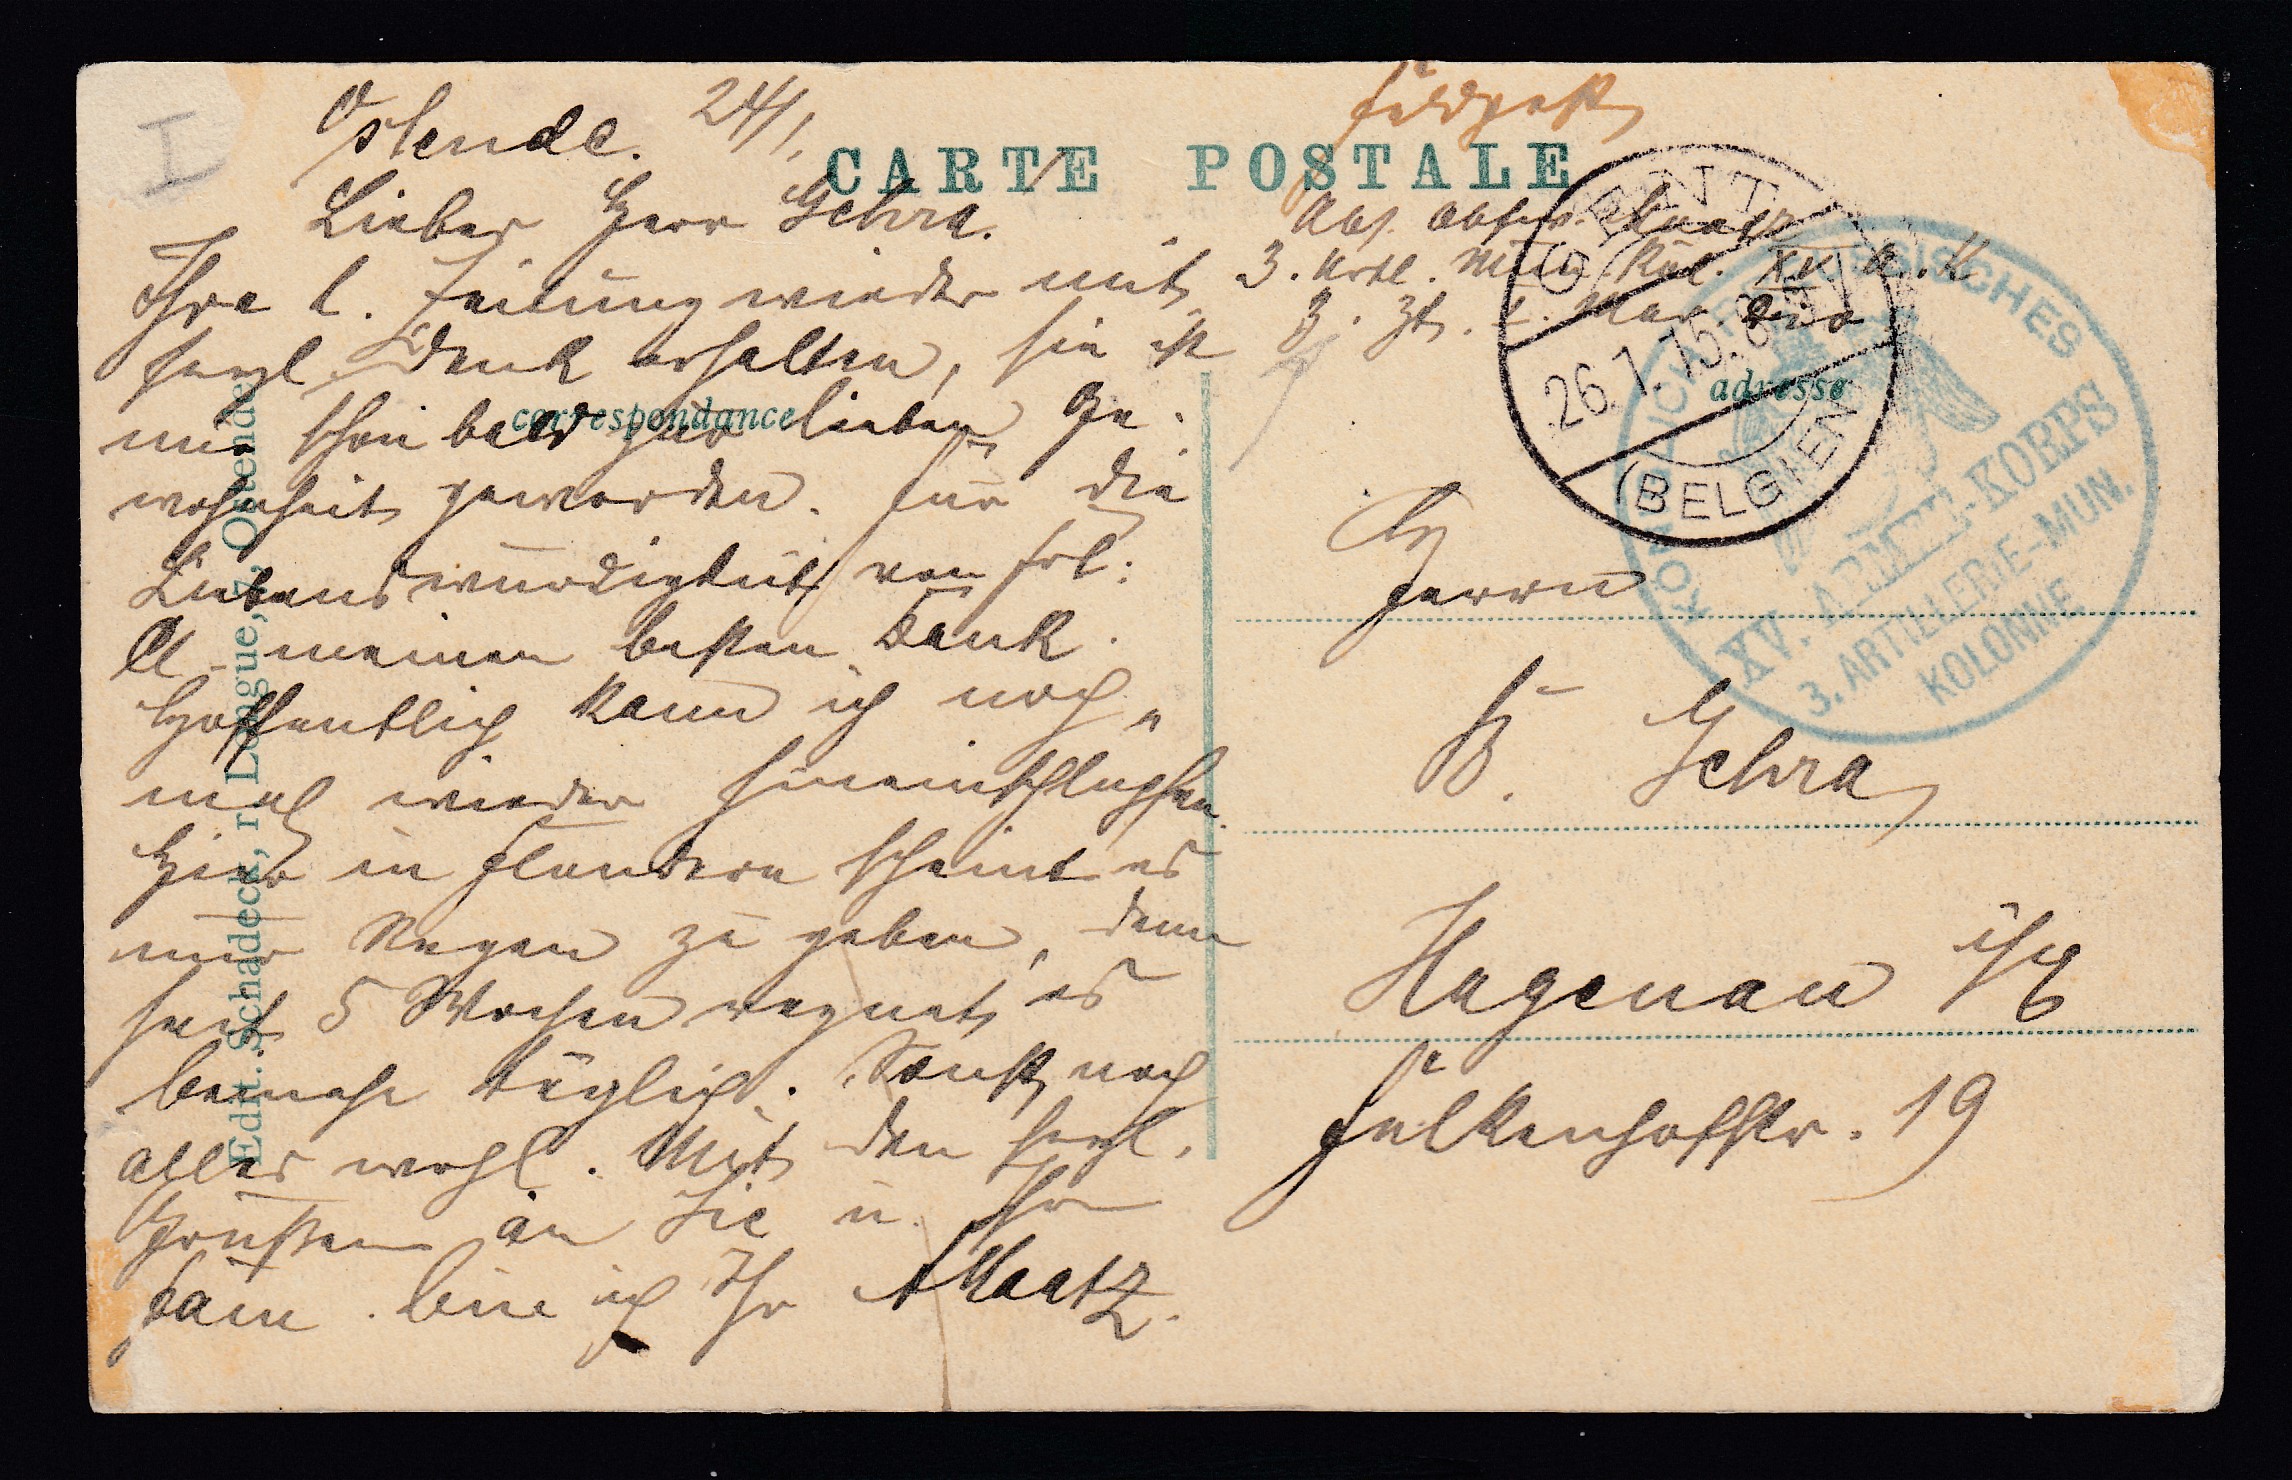 I
Ostende. 24/1.
Lieber Herr Gehra.
Ihre l. Zeitung wieder mit
herzl. Dank erhalten, sie ist
mir schon bald zur lieben Ge-
wohnheit geworden. Für die
Liebenswürdigkeit von frl:
A. meinen besten Dank.
Hoffentlich kann ich noch
mal wieder
Hier in Flandern scheint es
nur Regen zu geben, denn
seit 5 Wochen regnet es
beinahe täglich. Sonst noch
alles wohl. Mit den herzl.
Grüßen an Sie u. Ihr
bin ich Ihr AMaatz.
Edit. Schadeck, r Longue, Ostende
CARTE POSTALE
correspondance
adresse
Feldpost
Abs. Maatz
3. Artl. Mun Kol. XV A.K
z. Zt. 1. Mar. Div
GENT
26.1.15. 8-9V
(BELGIEN)
KÖNIGLICH PREUSSISCHES
XV. ARMEE-KORPS
3. ARTILLERIE-MUN.
KOLONNE
An
Herrn
B. Gehra
Hagenau i/E
Falkenhofstr. 19